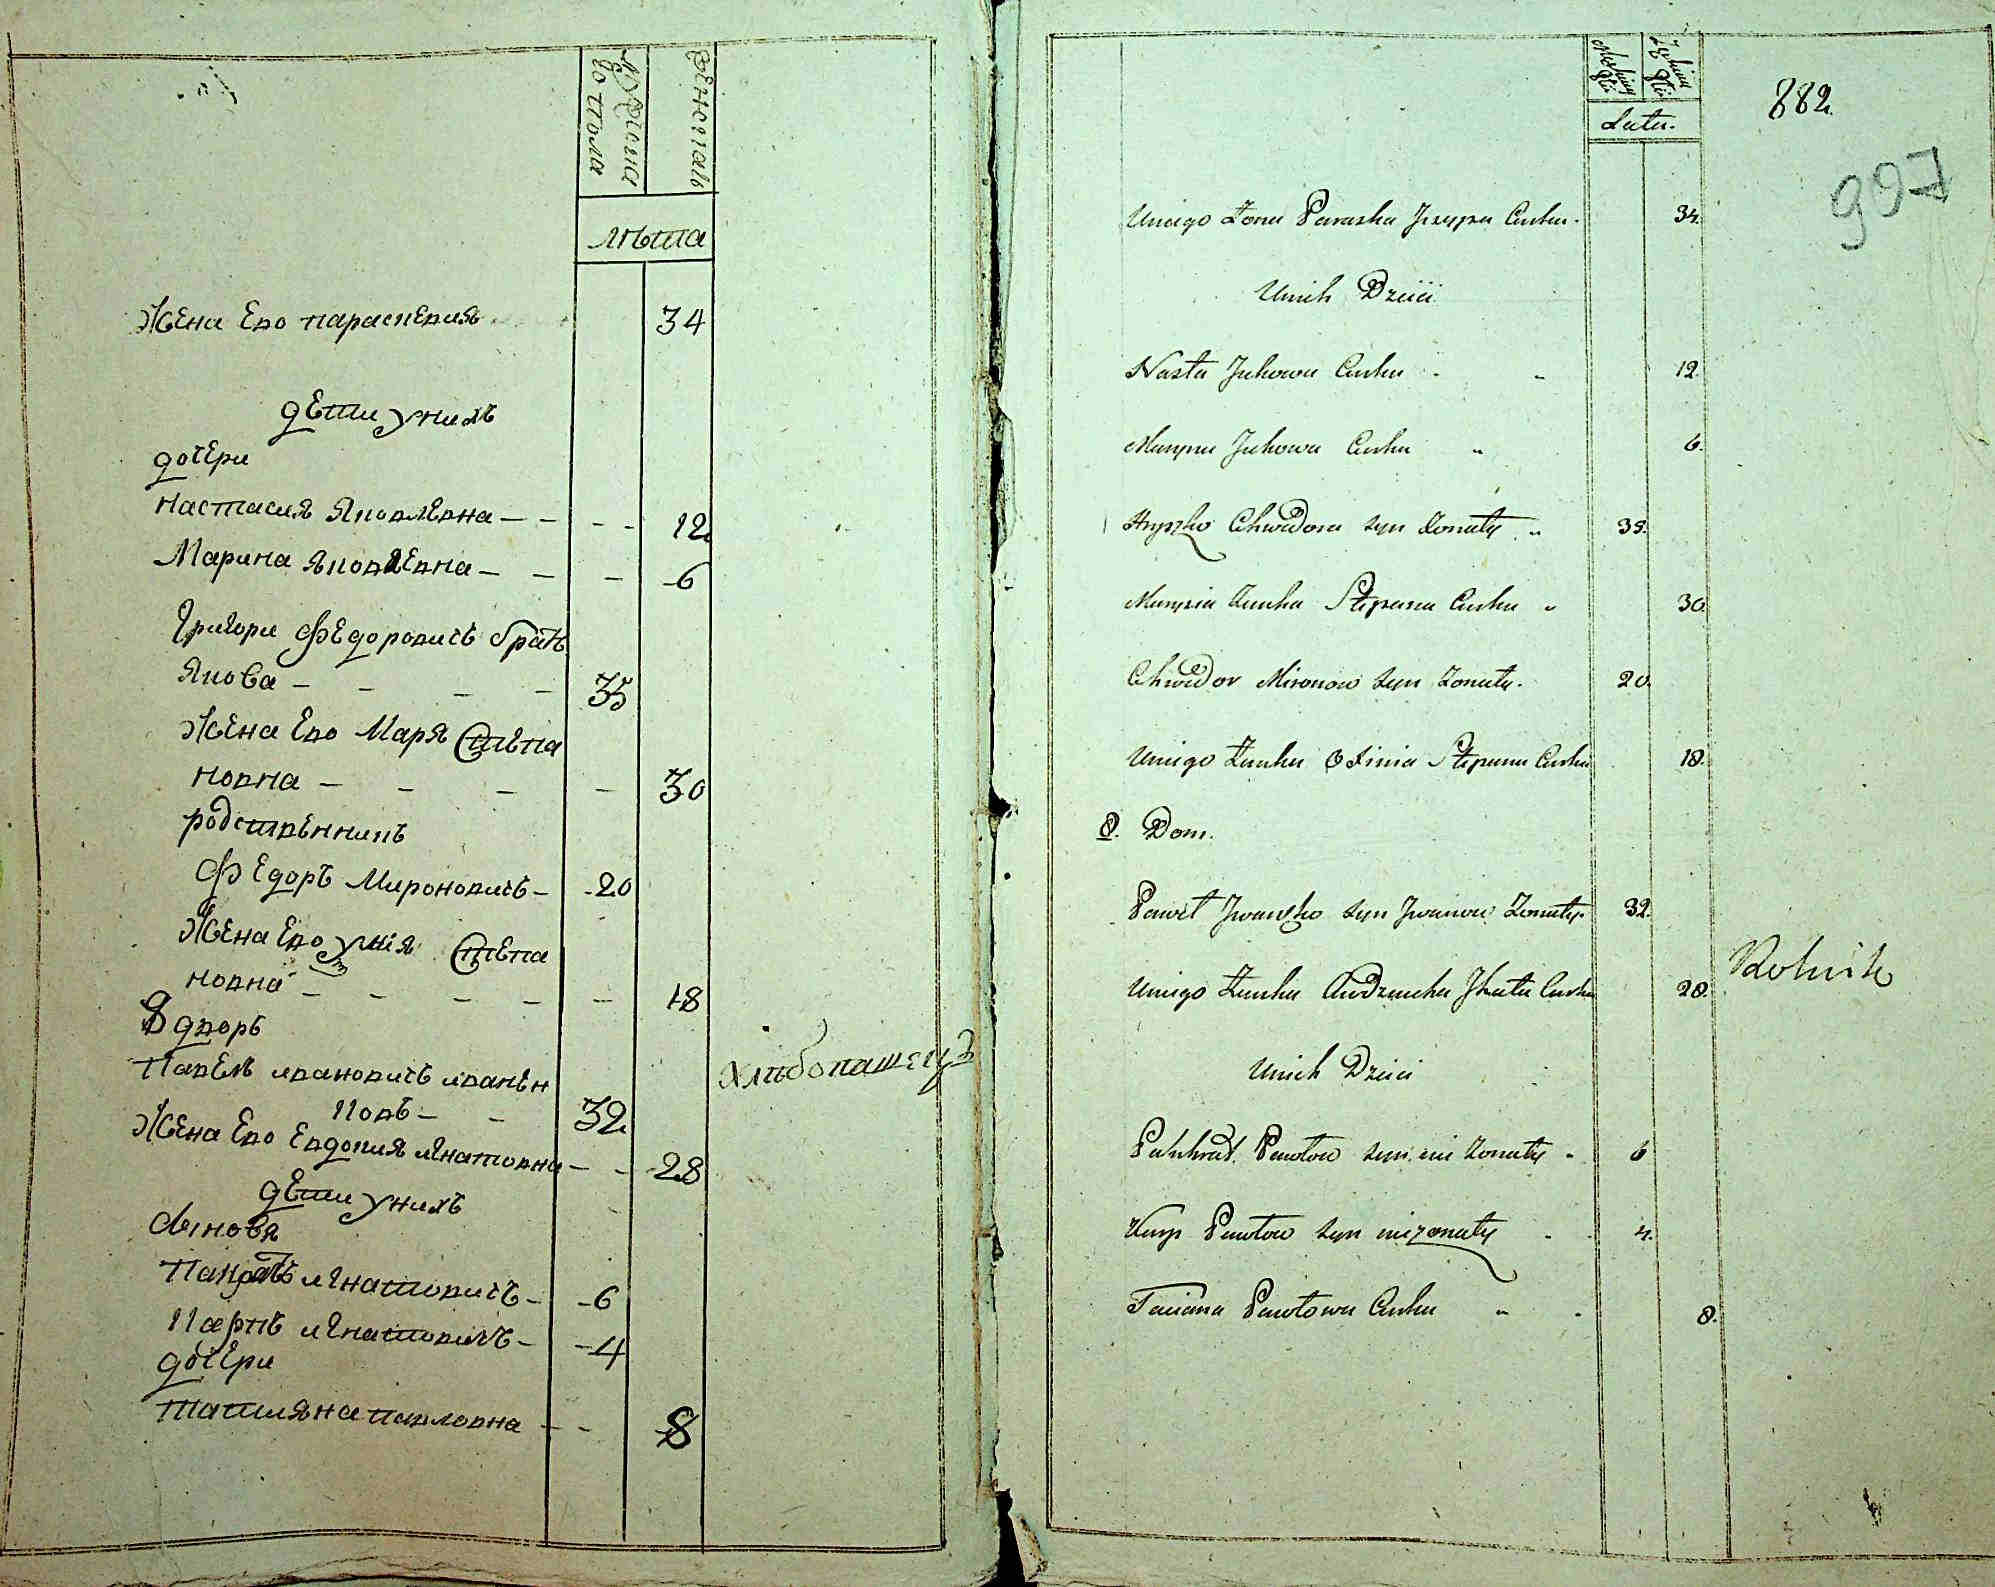 Мужеска
го пола
Женскаго
лѣта
Жена Его параскевия 34
дети у них
дочери
Настасия Яковлевна — — — — 12
Марина Яковлевна — — — 6
Григори Федорович брат
Якова — — — — 35
Жена Его Маря Степа
новна — — — — 30
родственникъ
Федоръ Миронович — 20
Жена Его Степа
новна — — — — — 18
8 дворъ
Павел ивановичь иванен
ковъ — — 32 хлибопашецъ
Жена Его Евдокия игнатовна — — 28
дети у них
Сыновя
Панкратъ игнатовичъ — 6
Карпъ игнатовичъ — 4
дочери
татияна павловна — — 8
Męskiey
płci
Żeńskiey
płci
Latu.
882
997
Uniego Żona Paraska Jzypa Curka. 34.
Unich Dzieci
Nasta Jukowa Curka 12.
Maryna Jukowa Curka 6.
Hryszko Chwedora syn Żonaty 35.
Marysia Żonka Stepana Curka 30
Chwedor Mironow syn Żonaty. 20.
Uniego Żonka Xinia Stepana Curka 18.
8. Dom.
Paweł Jwanko syn Jwanow Żonaty 32.
Uniego Żonka Audzeucha Jhnata Curka 28. Rolnik
Unich Dzieci
Pankrat. Pawłow syn nie Żonaty 6
Karp Pawłow syn nieżonaty 4.
Taciana Pawłowa Curka 8.